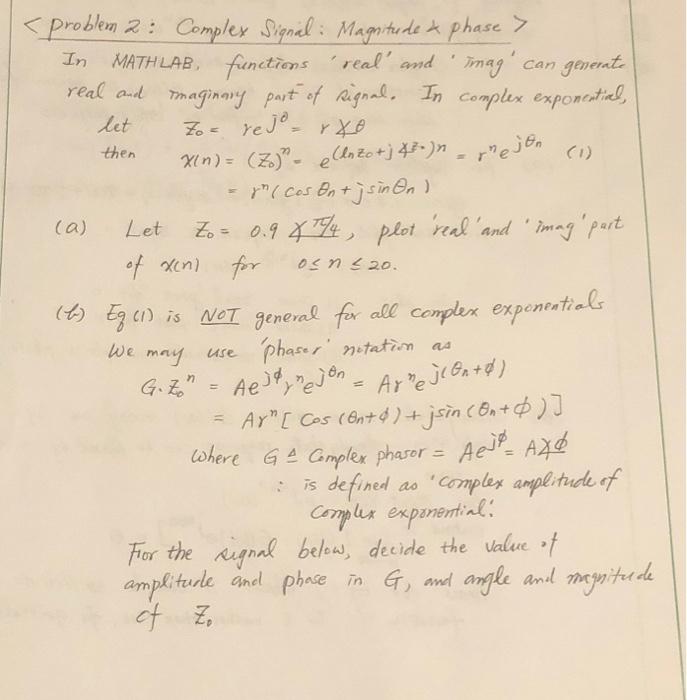 < problem 2 : Complex Signal : Magnitude & phase >
In MATHLAB, functions 'real' and 'imag' can generate
real and imaginary part of signal. In complex exponential,
let Z₀ = re^{jθ} = r∠θ
then x(n) = (Z₀)ⁿ = e^{(ln z₀ + j∠z₀)n} = rⁿe^{jθn} (1)
= rⁿ( cos θn + j sin θn )
(a) Let Z₀ = 0.9 ∠π/4, plot 'real' and 'imag' part
of x(n) for 0 ≤ n ≤ 20.
(b) Eq (1) is NOT general for all complex exponentials
We may use 'phasor' notation as
G·Z₀ⁿ = Ae^{jϕ}rⁿe^{jθn} = Arⁿe^{j(θn+ϕ)}
= Arⁿ [ Cos (θn+ϕ) + jsin (θn+ϕ) ]
where G ≜ Complex phasor = Ae^{jϕ} = A∠ϕ
: is defined as 'complex amplitude of
Complex exponential'.
For the signal below, decide the value of
amplitude and phase in G, and angle and magnitude
of Z₀